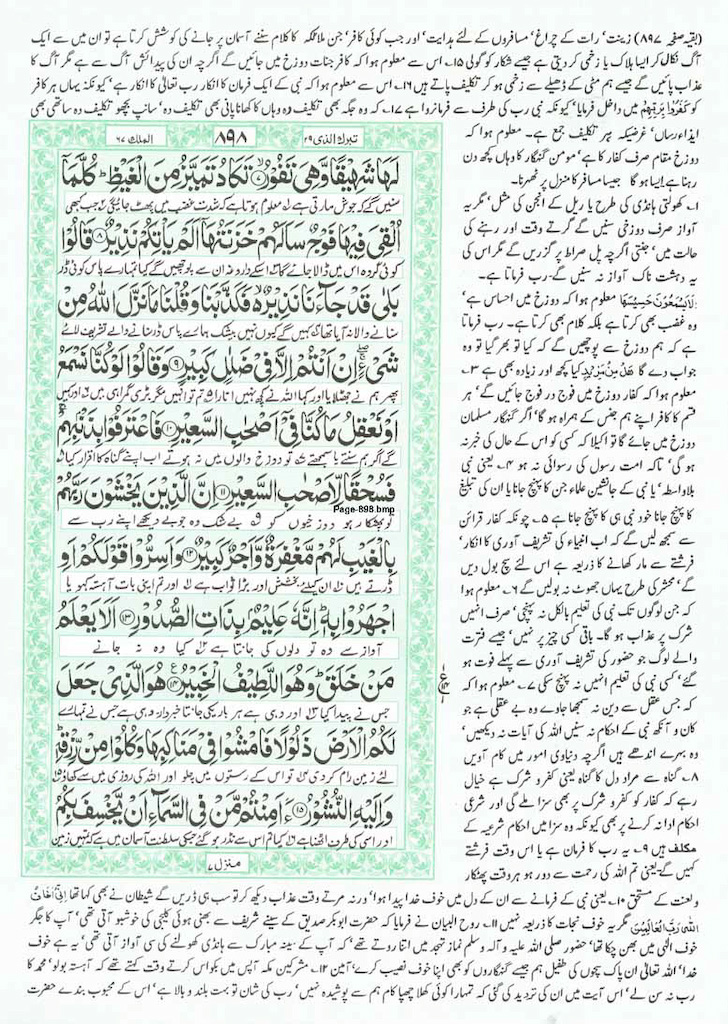 (بقیہ صفحہ ۸۹۷) زینت' رات کے چراغ' مسافروں کے لئے ہدایت' اور جب کوئی کافر' جن ملائکہ کا کلام سننے آسمان پر جانے کی کوشش کرتا ہے تو ان میں سے ایک
آگ نکال کر ایسا ہلاک یا زخمی کر دیتی ہے جیسے شکار کو گولی ۱۵۔ اس سے معلوم ہوا کہ کافر جنات دوزخ میں جائیں گے اگرچہ ان کی پیدائش آگ سے ہے مگر آگ کا
عذاب پائیں گے جیسے ہم مٹی کے ڈھیلے سے زخمی ہو کر تکلیف پاتے ہیں ۱۶۔ اس سے معلوم ہوا کہ نبی کے ایک فرمان کا انکار رب تعالیٰ کا انکار ہے' کیونکہ یہاں ہر کافر
کو كَفَرُوْا بِرَبِّهِمْ میں داخل فرمایا' کیونکہ نبی رب کی طرف سے فرماتا ہے ۱۷۔ کہ وہ جگہ بھی تکلیف دہ وہاں کا کھانا پانی بھی تکلیف دہ' سانپ بچھو تکلیف دہ ساتھی بھی
ایذاء رساں' غرضیکہ ہر تکلیف جمع ہے۔ معلوم ہوا کہ
دوزخ مقام صرف کفار کا ہے' مومن گنہگار کا وہاں کچھ دن
رہنا ہے ایسا ہو گا جیسا مسافر کا منزل پر ٹھہرنا۔
۱۔ کھولتی ہانڈی کی طرح یا ریل کے انجن کی مثل' مگر یہ
آواز صرف دوزخی سنیں گے گرتے وقت اور رہنے کی
حالت میں' جنتی اگرچہ پل صراط پر گزریں گے مگر اس کی
یہ دہشت ناک آواز نہ سنیں گے۔ رب فرماتا ہے۔
لَا يَسْمَعُوْنَ حَسِيْسَهَا معلوم ہوا کہ دوزخ میں احساس ہے'
وہ غضب بھی کرتا ہے بلکہ کلام بھی کرتا ہے۔ رب فرماتا
ہے کہ ہم دوزخ سے پوچھیں گے کہ کیا تو بھر گیا تو وہ
جواب دے گا هَلْ مِنْ مَّزِيْدٍ کیا کچھ اور زیادہ بھی ہے ۳۔
معلوم ہوا کہ کفار دوزخ میں فوج در فوج جائیں گے' ہر
قسم کا کافر اپنے ہم جنس کے ہمراہ ہو گا' اگر گنہگار مسلمان
دوزخ میں جائے گا تو اکیلا کہ کسی کو اس کے حال کی خبر نہ
ہو گی' تاکہ امت رسول کی رسوائی نہ ہو ۴۔ یعنی نبی
بلاواسطہ' یا نبی کے جانشین علماء جن کا پہنچ جانا یا ان کی تبلیغ
کا پہنچ جانا خود نبی ہی کا پہنچ جانا ہے ۵۔ چونکہ کفار قرائن
سے سمجھ لیں گے کہ اب انبیاء کی تشریف آوری کا انکار'
فرشتے سے مار کھانے کا ذریعہ ہے اس لئے سچ بول دیں
گے' محشر کی طرح یہاں جھوٹ نہ بولیں گے ۶۔ معلوم ہوا
کہ جن لوگوں تک نبی کی تعلیم بالکل نہ پہنچی' صرف انہیں
شرک پر عذاب ہو گا۔ باقی کسی چیز پر نہیں' جیسے فترت
والے لوگ جو حضور کی تشریف آوری سے پہلے فوت ہو
گئے' کسی نبی کی تعلیم انہیں نہ پہنچ سکی ۷۔ معلوم ہوا کہ
کہ جس عقل سے دین نہ سمجھا جاوے وہ بے عقلی ہے جو
کان و آنکھ نبی کے احکام نہ سنیں اللہ کی آیات نہ دیکھیں'
وہ بہرے اندھے ہیں اگرچہ دنیاوی امور میں کام آویں
۸۔ گناہ سے مراد دل کا گناہ یعنی کفر و شرک ہے خیال
رہے کہ کفار کو کفر و شرک پر بھی سزا ملے گی اور شرعی
احکام ادا نہ کرنے پر بھی کیونکہ وہ سزا میں احکام شرعیہ کے
مکلف ہیں ۹۔ یہ رب کا فرمان ہے یا اس وقت فرشتے
کہیں گے۔ یعنی تم اللہ کی رحمت سے دور ہو ہر وقت پھٹکار
تبٰرك الذی ۲۹
۸۹۸
الملك ۶۷
لَهَا شَهِيْقًا وَّهِيَ تَفُوْرُ ۝۷ تَكَادُ تَمَيَّزُ مِنَ الْغَيْظِ ؕ كُلَّمَاۤ
سنیں گے کہ جوش مارتی ہے لہ معلوم ہوتا ہے کہ شدت غضب میں پھٹ جائیگی لہ جب کبھی
اُلْقِيَ فِيْهَا فَوْجٌ سَاَلَهُمْ خَزَنَتُهَاۤ اَلَمْ يَاْتِكُمْ نَذِيْرٌ ۝۸ قَالُوْا
کوئی گروہ اس میں ڈالا جائے گا تہ اسکے داروغہ ان سے پوچھیں گے کیا تمہارے پاس کوئی ڈر
بَلٰى قَدْ جَآءَنَا نَذِيْرٌ ۙ۬ فَكَذَّبْنَا وَقُلْنَا مَا نَزَّلَ اللّٰهُ مِنْ
سنانے والا نہ آیا تھا کہیں گے کیوں نہیں بیشک ہمارے پاس ڈر سنانے والے تشریف لائے
شَيْءٍ ۖۚ اِنْ اَنْتُمْ اِلَّا فِيْ ضَلٰلٍ كَبِيْرٍ ۝۹ وَقَالُوْا لَوْ كُنَّا نَسْمَعُ
پھر ہم نے جھٹلایا اور کہا اللہ نے کچھ نہیں اتارا تم تو نہیں مگر بڑی گمراہی میں اور کہیں
اَوْ نَعْقِلُ مَا كُنَّا فِيْۤ اَصْحٰبِ السَّعِيْرِ ۝۱۰ فَاعْتَرَفُوْا بِذَنْۢبِهِمْ ۚ
گے اگر ہم سنتے یا سمجھتے تو دوزخ والوں میں نہ ہوتے اب اپنے گناہ کا اقرار کیا
فَسُحْقًا لِّاَصْحٰبِ السَّعِيْرِ ۝۱۱ اِنَّ الَّذِيْنَ يَخْشَوْنَ رَبَّهُمْ
Page-898.bmp
تو پھٹکار ہو دوزخیوں کو بے شک وہ جو بے دیکھے اپنے رب سے
بِالْغَيْبِ لَهُمْ مَّغْفِرَةٌ وَّاَجْرٌ كَبِيْرٌ ۝۱۲ وَاَسِرُّوْا قَوْلَكُمْ اَوِ
ڈرتے ہیں ان کیلئے بخشش اور بڑا ثواب ہے اور تم اپنی بات آہستہ کہو یا
اجْهَرُوْا بِهٖ ؕ اِنَّهٗ عَلِيْمٌۢ بِذَاتِ الصُّدُوْرِ ۝۱۳ اَلَا يَعْلَمُ
آواز سے وہ تو دلوں کی جانتا ہے کیا وہ نہ جانے
مَنْ خَلَقَ ؕ وَهُوَ اللَّطِيْفُ الْخَبِيْرُ ۝۱۴ هُوَ الَّذِيْ جَعَلَ
جس نے پیدا کیا اور وہی ہے ہر باریکی جانتا خبردار وہی ہے جس نے تمہارے
لَكُمُ الْاَرْضَ ذَلُوْلًا فَامْشُوْا فِيْ مَنَاكِبِهَا وَكُلُوْا مِنْ رِّزْقِهٖ ؕ
لئے زمین رام کر دی تو اس کے رستوں میں چلو اور اللہ کی روزی میں سے کھاؤ
وَاِلَيْهِ النُّشُوْرُ ۝۱۵ ءَاَمِنْتُمْ مَّنْ فِي السَّمَآءِ اَنْ يَّخْسِفَ بِكُمُ
اور اسی کی طرف اٹھنا ہے کیا تم اس سے نڈر ہو گئے جسکی سلطنت آسمان میں ہے کہ تمہیں زمین
منزل ۷
و لعنت کے مستحق ۱۰۔ یعنی نبی کے فرمانے سے ان کے دل میں خوف خدا پیدا ہوا' ورنہ مرتے وقت عذاب دیکھ کر تو سب ہی ڈریں گے شیطان نے بھی کہا تھا اِنِّيْۤ اَخَافُ
اللّٰهَ رَبَّ الْعٰلَمِيْنَ مگر یہ خوف نجات کا ذریعہ نہیں ۱۱۔ روح البیان نے فرمایا کہ حضرت ابوبکر صدیق کے سینے شریف سے بھنی ہوئی کلیجی کی خوشبو آتی تھی' آپ کا جگر
خوف الٰہی میں بھن چکا تھا' حضور صلی اللہ علیہ و آلہ وسلم نماز تہجد میں اتنا روتے تھے' کہ آپ کے سینہ مبارک سے ہانڈی کھولنے کی سی آواز آتی تھی' یہ ہے خوف
خدا' اللہ تعالیٰ ان پاک سینوں کی طفیل ہم جیسے گنہگاروں کو بھی اپنا خوف نصیب کرے' آمین ۱۲۔ مشرکین مکہ آپس میں بکواس کرتے وقت کہتے تھے کہ آہستہ بولو' محمد کا
رب نہ سن لے' اس آیت میں ان کی تردید کی گئی کہ تمہارا کوئی کھلا چھپا کام ہم سے پوشیدہ نہیں' رب کی شان تو بہت بلند و بالا ہے' اس کے محبوب بندے حضرت